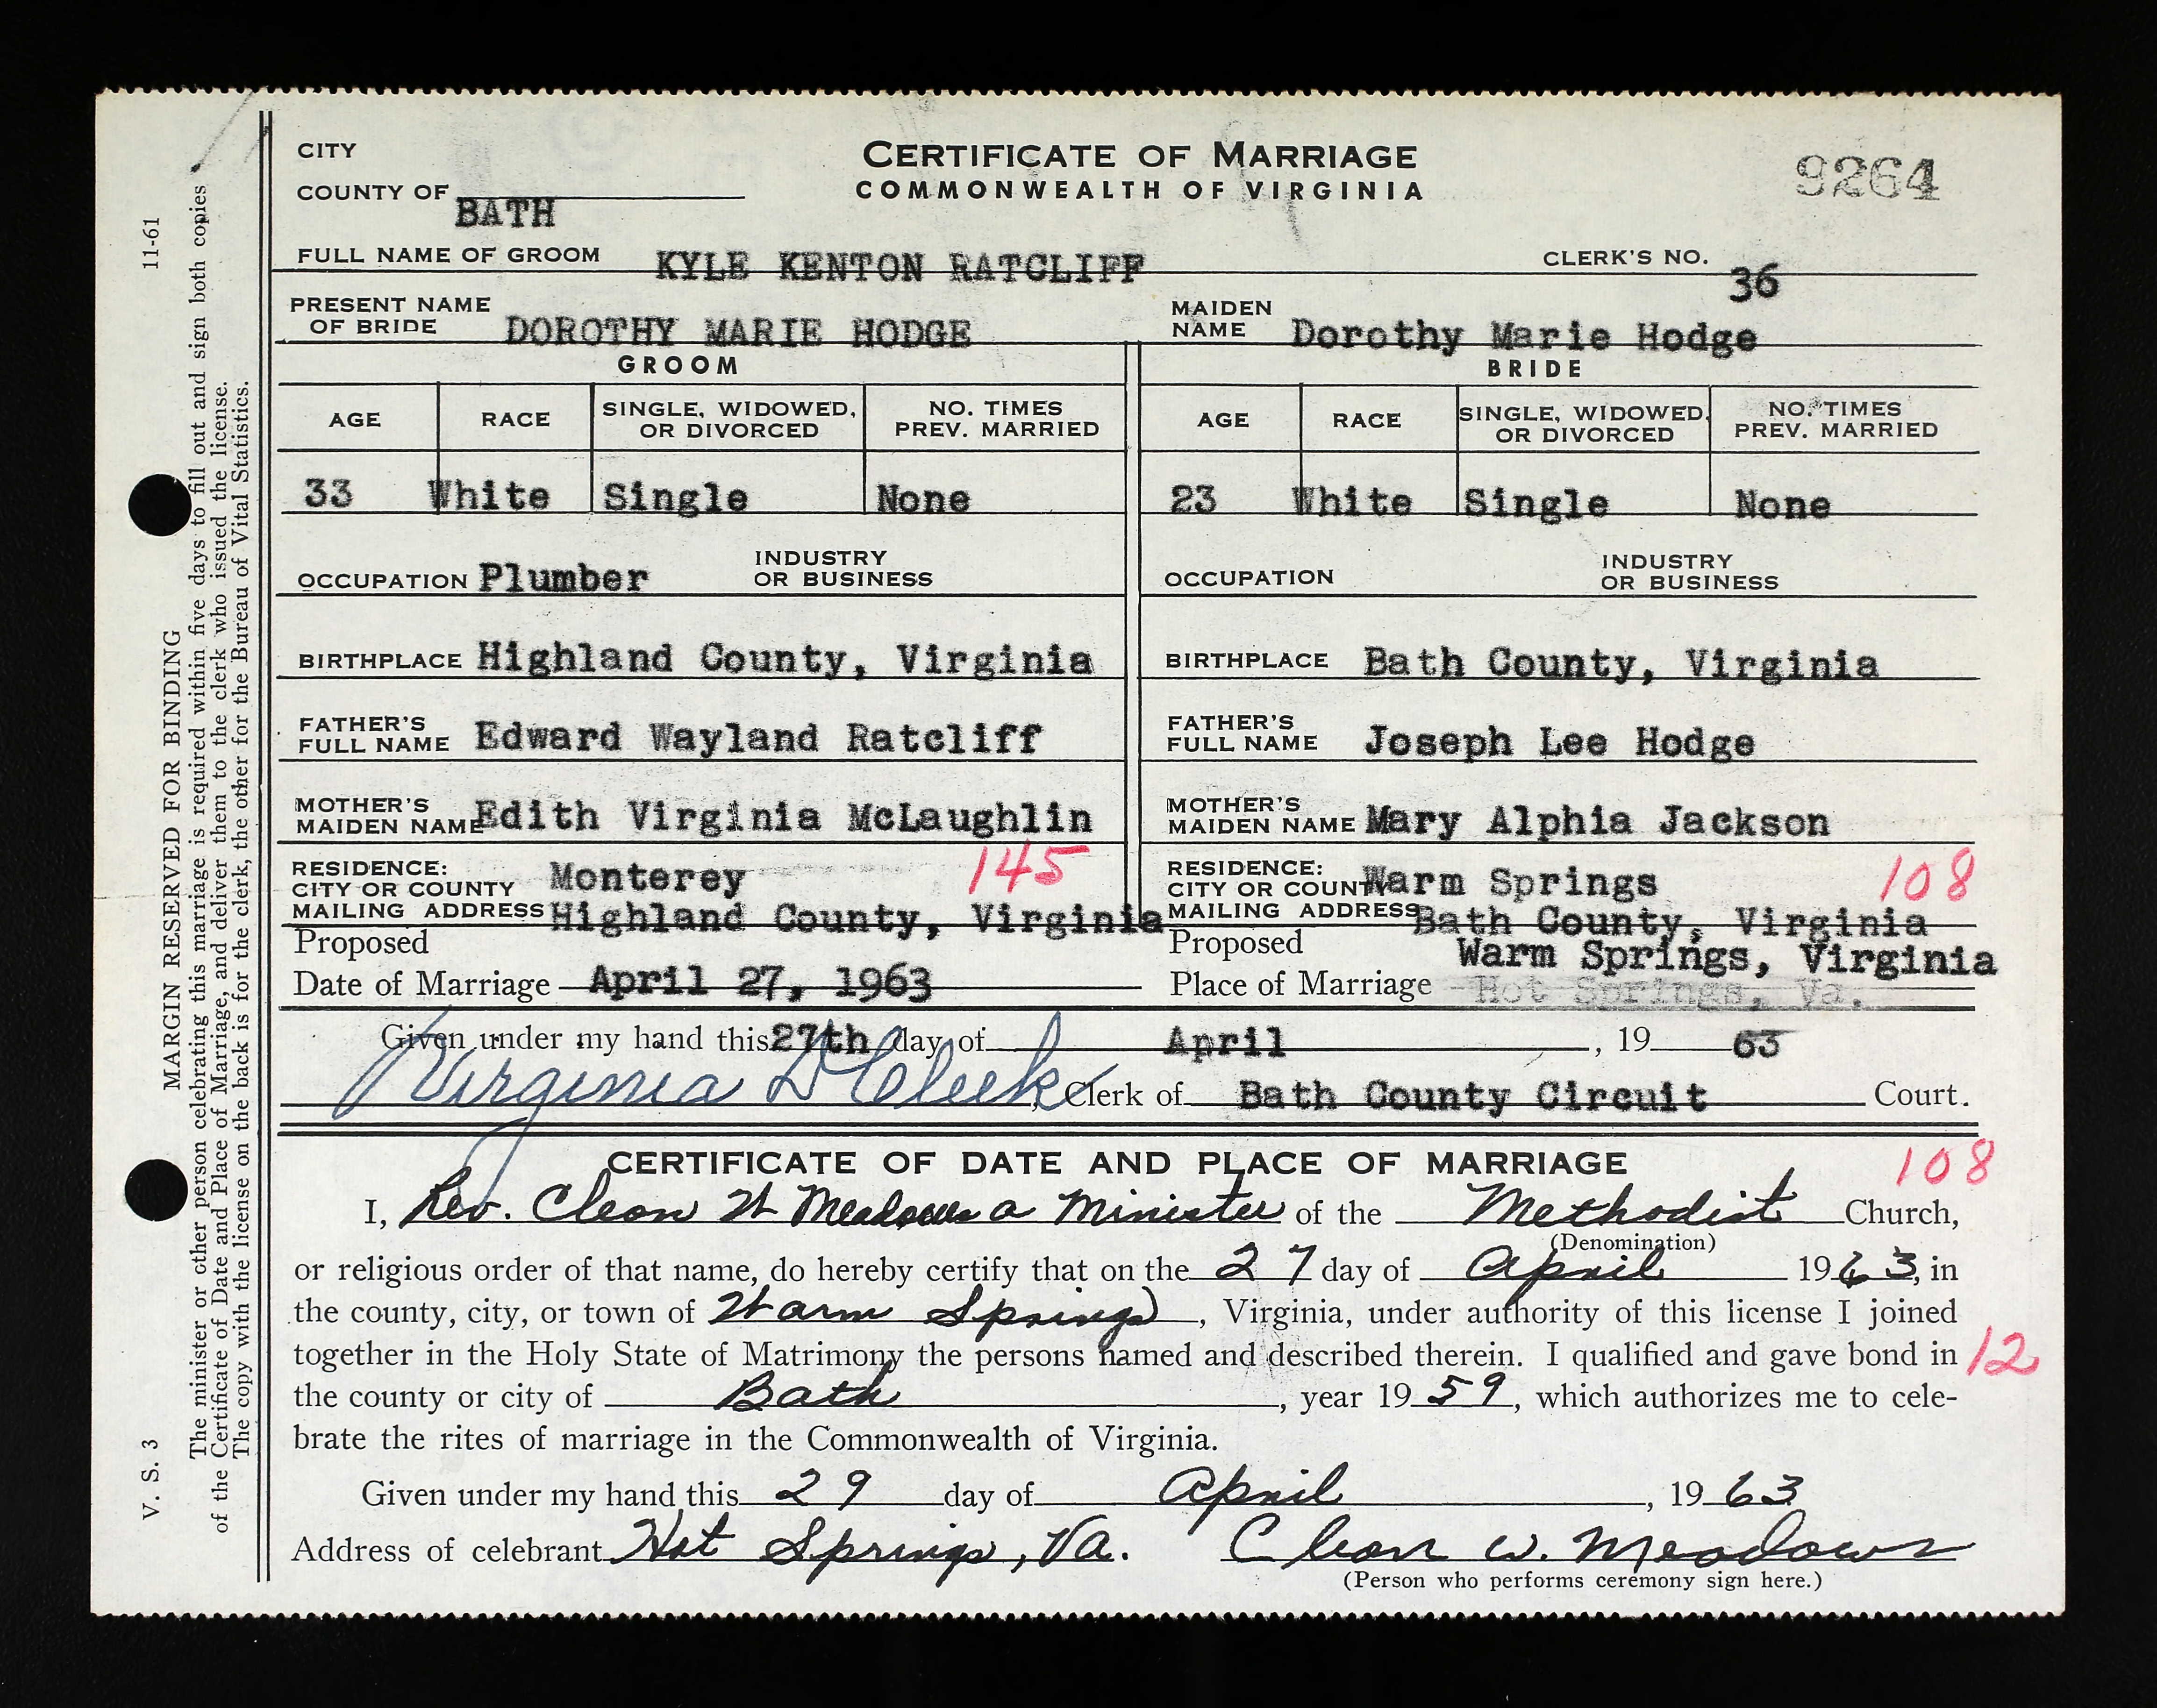 CITY
COUNTY OF BATH
CERTIFICATE OF MARRIAGE
COMMONWEALTH OF VIRGINIA
9264
FULL NAME OF GROOM KYLE KENTON RATCLIFF CLERK'S NO. 36
PRESENT NAME OF BRIDE DOROTHY MARIE HODGE MAIDEN NAME Dorothy Marie Hodge
GROOM BRIDE
AGE RACE SINGLE, WIDOWED, OR DIVORCED NO. TIMES PREV. MARRIED AGE RACE SINGLE, WIDOWED, OR DIVORCED NO. TIMES PREV. MARRIED
33 White Single None 23 White Single None
OCCUPATION Plumber INDUSTRY OR BUSINESS OCCUPATION INDUSTRY OR BUSINESS
BIRTHPLACE Highland County, Virginia BIRTHPLACE Bath County, Virginia
FATHER'S FULL NAME Edward Wayland Ratcliff FATHER'S FULL NAME Joseph Lee Hodge
MOTHER'S MAIDEN NAME Edith Virginia McLaughlin MOTHER'S MAIDEN NAME Mary Alphia Jackson
RESIDENCE: CITY OR COUNTY Monterey 145 RESIDENCE: CITY OR COUNTY Warm Springs 108
MAILING ADDRESS Highland County, Virginia MAILING ADDRESS Bath County, Virginia
Proposed Date of Marriage April 27, 1963 Proposed Place of Marriage Warm Springs, Virginia
Hot Springs, Va.
Given under my hand this 27th day of April, 1963
Virginia D Cleek, Clerk of Bath County Circuit Court.
CERTIFICATE OF DATE AND PLACE OF MARRIAGE 108
I, Rev. Cleon W Meadows a Minister of the Methodist Church,
(Denomination)
or religious order of that name, do hereby certify that on the 27 day of April 1963, in
the county, city, or town of Warm Springs, Virginia, under authority of this license I joined
together in the Holy State of Matrimony the persons named and described therein. I qualified and gave bond in 12
the county or city of Bath, year 1959, which authorizes me to cele-
brate the rites of marriage in the Commonwealth of Virginia.
Given under my hand this 29 day of April, 1963
Address of celebrant Hot Springs, Va. Cleon W. Meadows
(Person who performs ceremony sign here.)
V. S. 3 MARGIN RESERVED FOR BINDING 11-61
The minister or other person celebrating this marriage is required within five days to fill out and sign both copies
of the Certificate of Date and Place of Marriage, and deliver them to the clerk who issued the license.
The copy with the license on the back is for the clerk, the other for the Bureau of Vital Statistics.